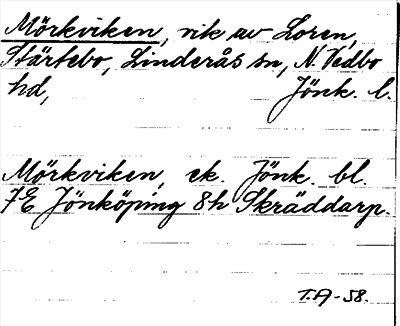 Mörkviken, vik av Loren,
Stärtebo, Linderås sn, N. Vedbo
hd, Jönk. l.
Mörkviken, ek. Jönk. bl.
7E Jönköping 8h Skräddarp.
T.A-58.